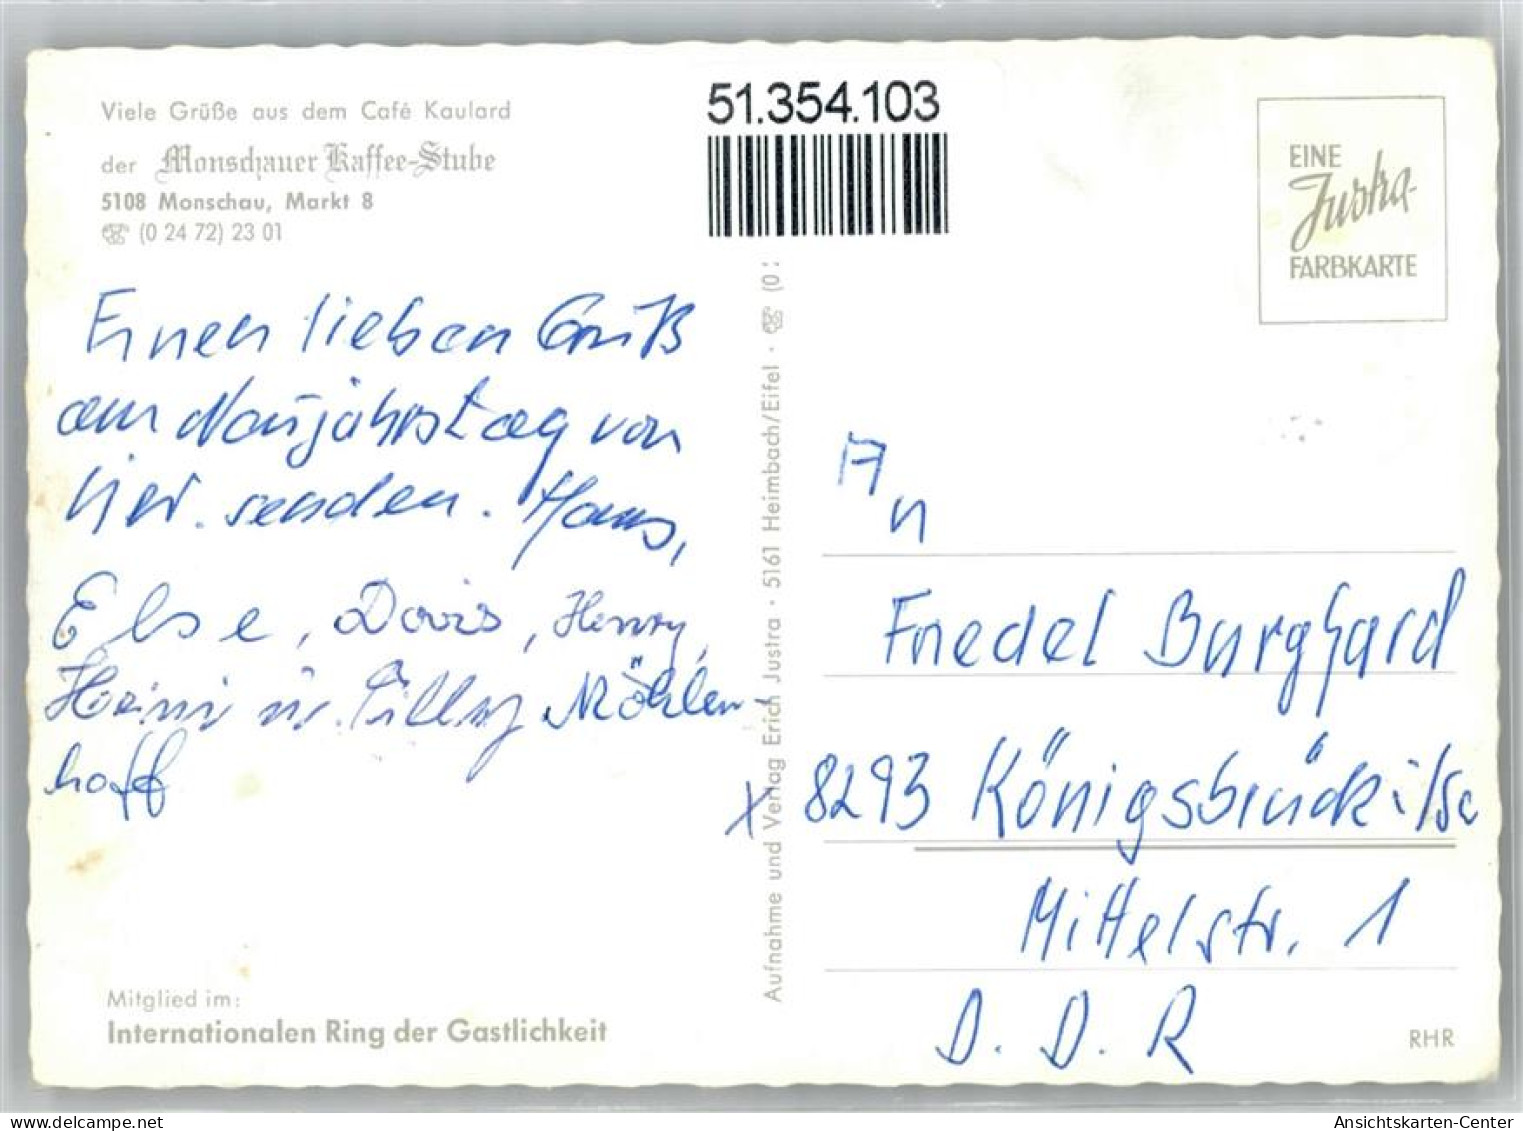 Viele Grüße aus dem Café Kaulard
der Monschauer Kaffee-Stube
5108 Monschau, Markt 8
☎ (0 24 72) 23 01
Einen lieben Gruß
am Neujahrstag von
hier senden. Hans,
Else, Doris, Henry,
Heini u. Cilly Möhlen-
hoff
51.354.103
Aufnahme und Verlag Erich Justra · 5161 Heimbach/Eifel · ☎ (0
EINE
Justra-
FARBKARTE
An
Friedel Burghard
x 8293 Königsbrück i/Sa
Mittelstr. 1
D. D. R
Mitglied im:
Internationalen Ring der Gastlichkeit
RHR
www.delcampe.net
Ansichtskarten-Center